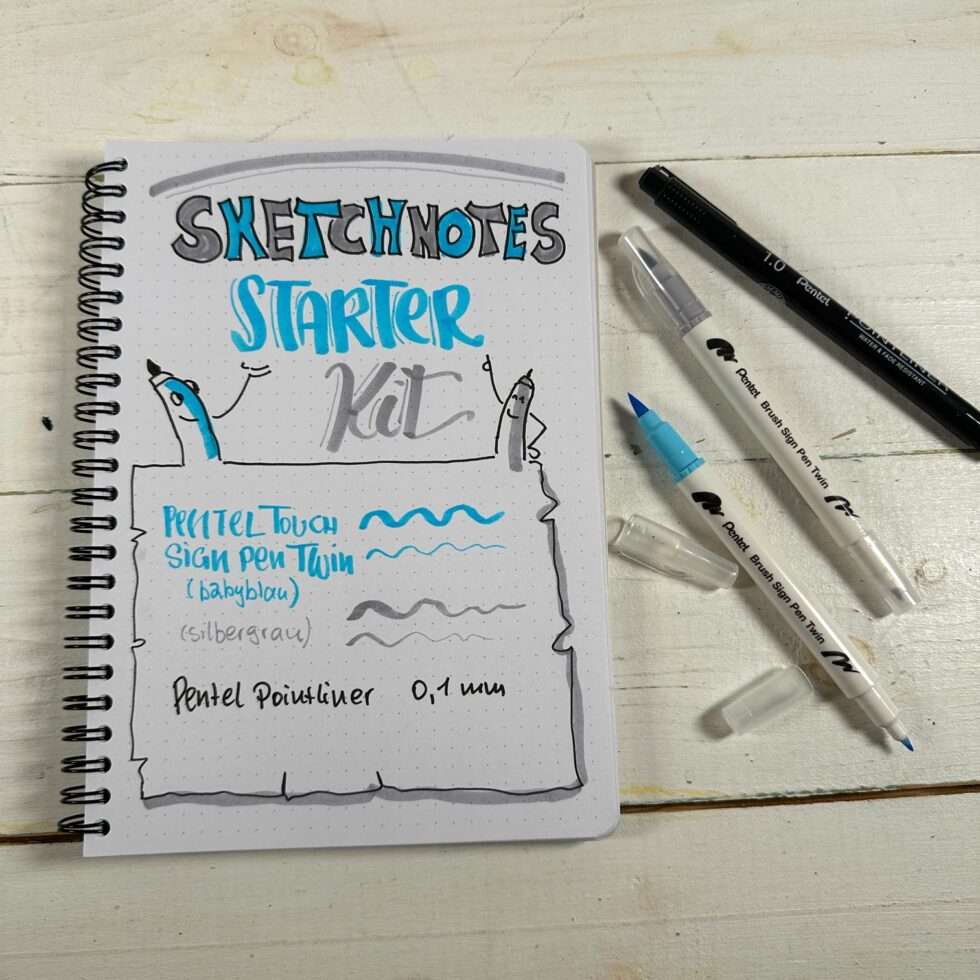 SKETCHNOTES
STARTER
Kit
PENTEL TOUCH
SIGN PEN TWIN
(babyblau)
(silbergrau)
Pentel Pointliner 0,1 mm
1.0 Pentel POINTLINER
WATER & FADE RESISTANT
Pentel Brush Sign Pen Twin
Pentel Brush Sign Pen Twin